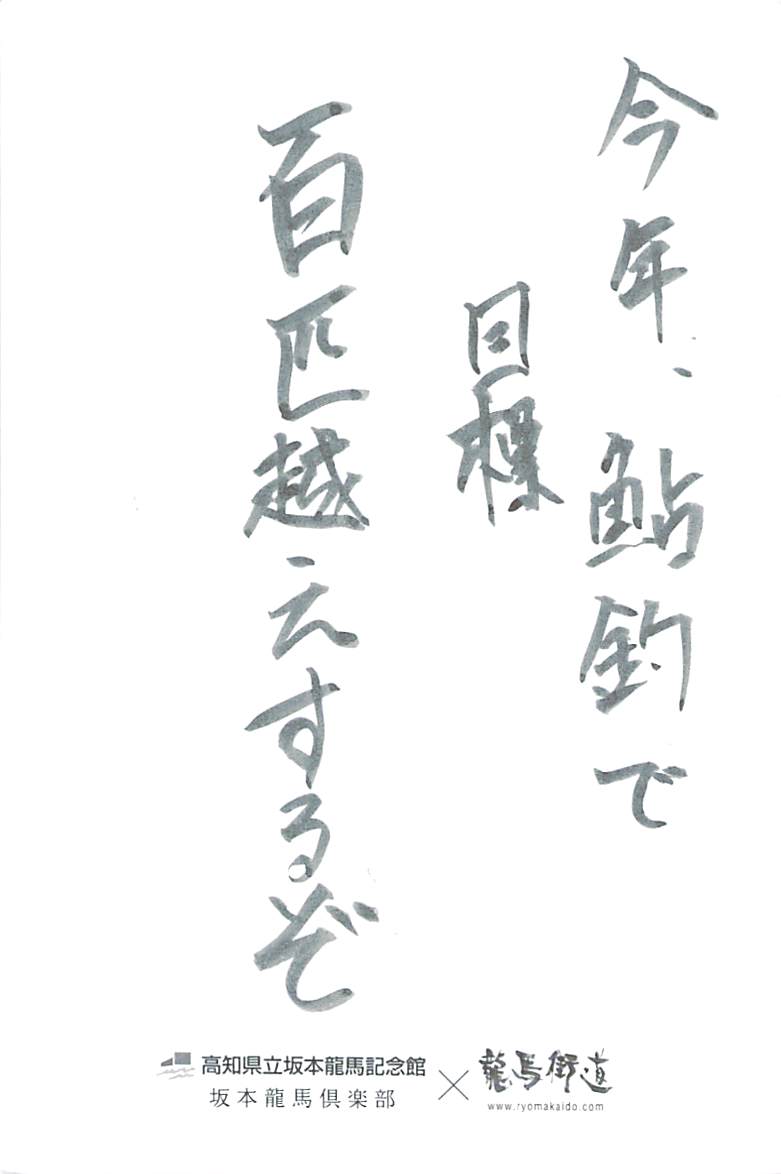 今年、鮎釣で
目標
百匹越えするぞ
高知県立坂本龍馬記念館
坂本龍馬倶楽部
×
龍馬街道
www.ryomakaido.com